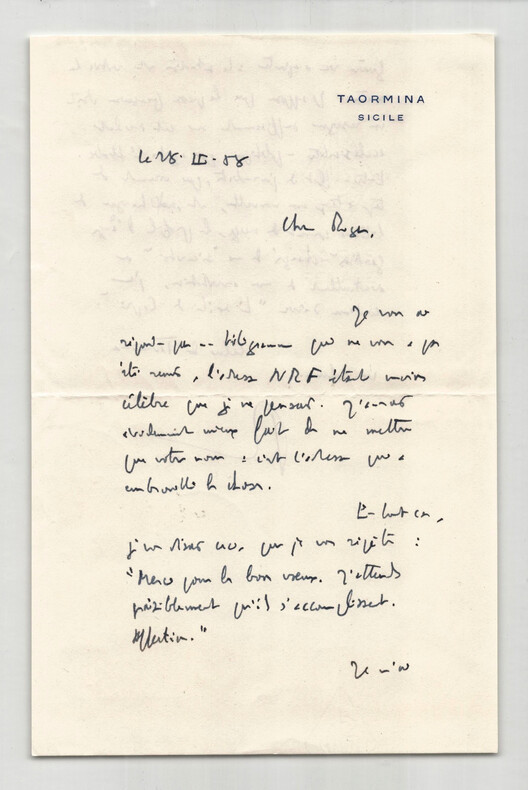 TAORMINA
SICILE
le 28. III. 58
Cher Roger,
Je vous ai
répondu par un télégramme qui ne vous a pas
été remis, l'adresse NRF étant moins
célèbre que je ne pensais. J'aurais
évidemment mieux fait de ne mettre
que votre nom : c'est l'adresse qui a
embrouillé la chose.
En tout cas,
je vous disais ceci, que je vous répète :
"Merci pour les bons vœux. J'attends
paisiblement qu'ils s'accomplissent.
Affection."
Je n'ai